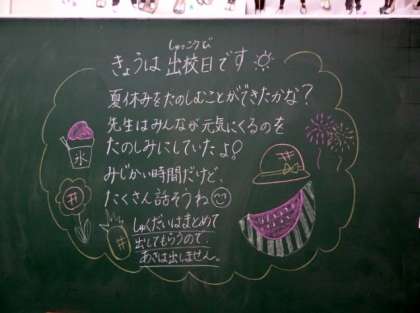 しゅっこうび
きょうは出校日です
夏休みをたのしむことができたかな？
先生はみんなが元気にくるのを
たのしみにしていたよ！
みじかい時間だけど、
たくさん話そうね
しゅくだいはまとめて
出してもらうので、
あさは出しません。
氷